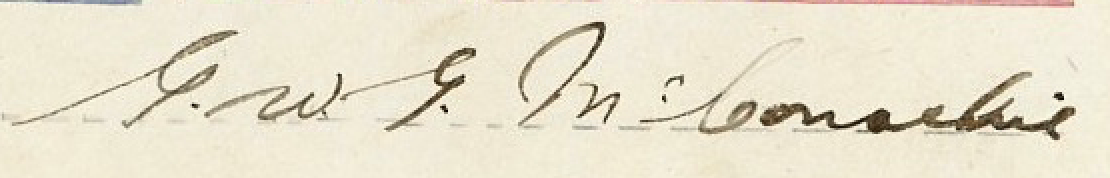 G. W. G. McConachie